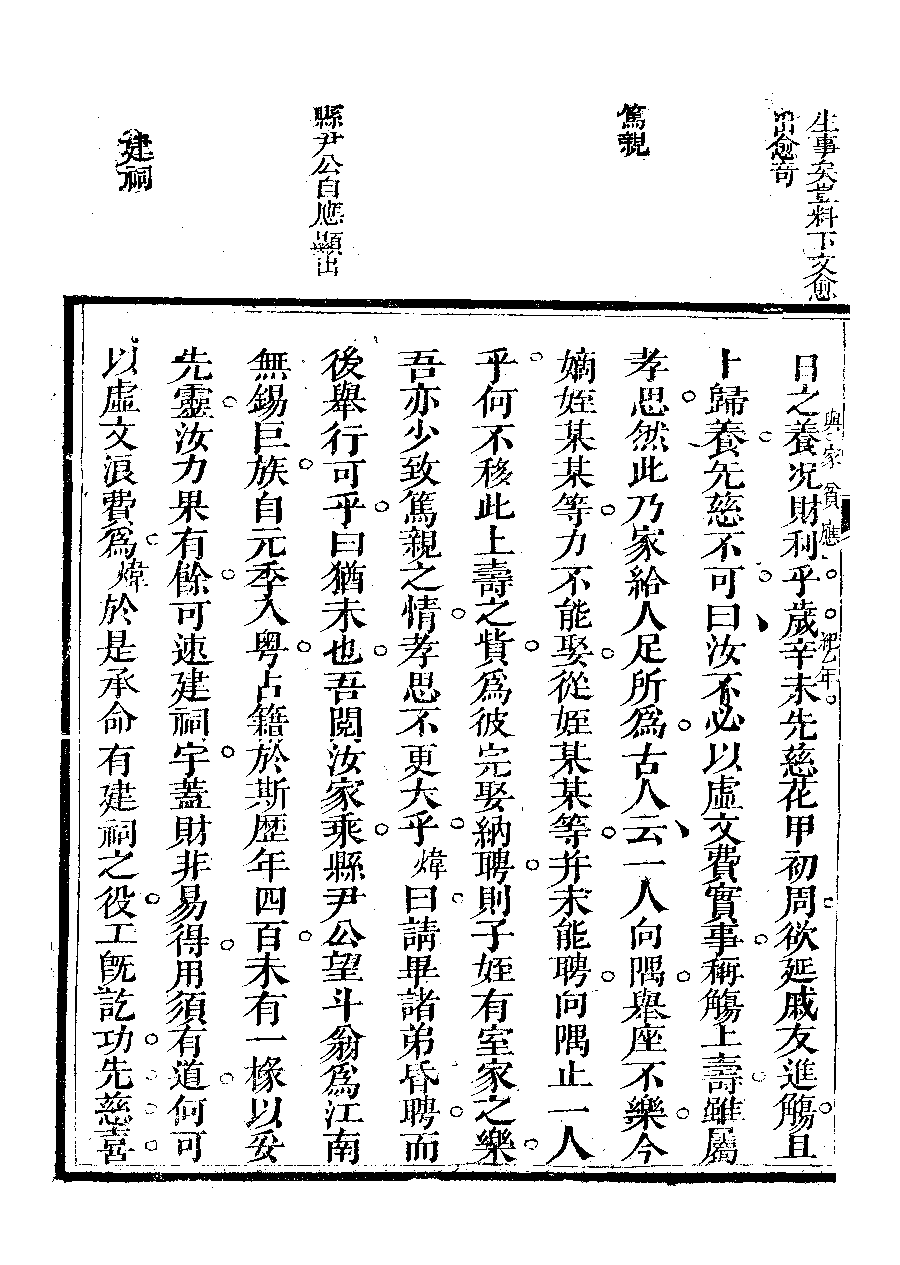 生事矣豈料下文愈
出愈奇
篤親
縣尹公自應顯出
建祠
日之養况財利乎歲辛未先慈花甲初周欲延戚友進觴且
與家貧應
卜歸養先慈不可曰汝不必以虛文費實事稱觴上壽雖屬
孝思然此乃家給人足所爲古人云一人向隅舉座不樂今
嫡姪某某等力不能娶從姪某某等并未能聘向隅止一人
乎何不移此上壽之貲爲彼完娶納聘則子姪有室家之樂
吾亦少致篤親之情孝思不更大乎煒曰請畢諸弟昏聘而
後舉行可乎曰猶未也吾閱汝家乘縣尹公望斗翁爲江南
無錫巨族自元季入粤占籍於斯歷年四百未有一椽以妥
先靈汝力果有餘可速建祠宇蓋財非易得用須有道何可
以虛文浪費爲煒於是承命有建祠之役工旣訖功先慈喜